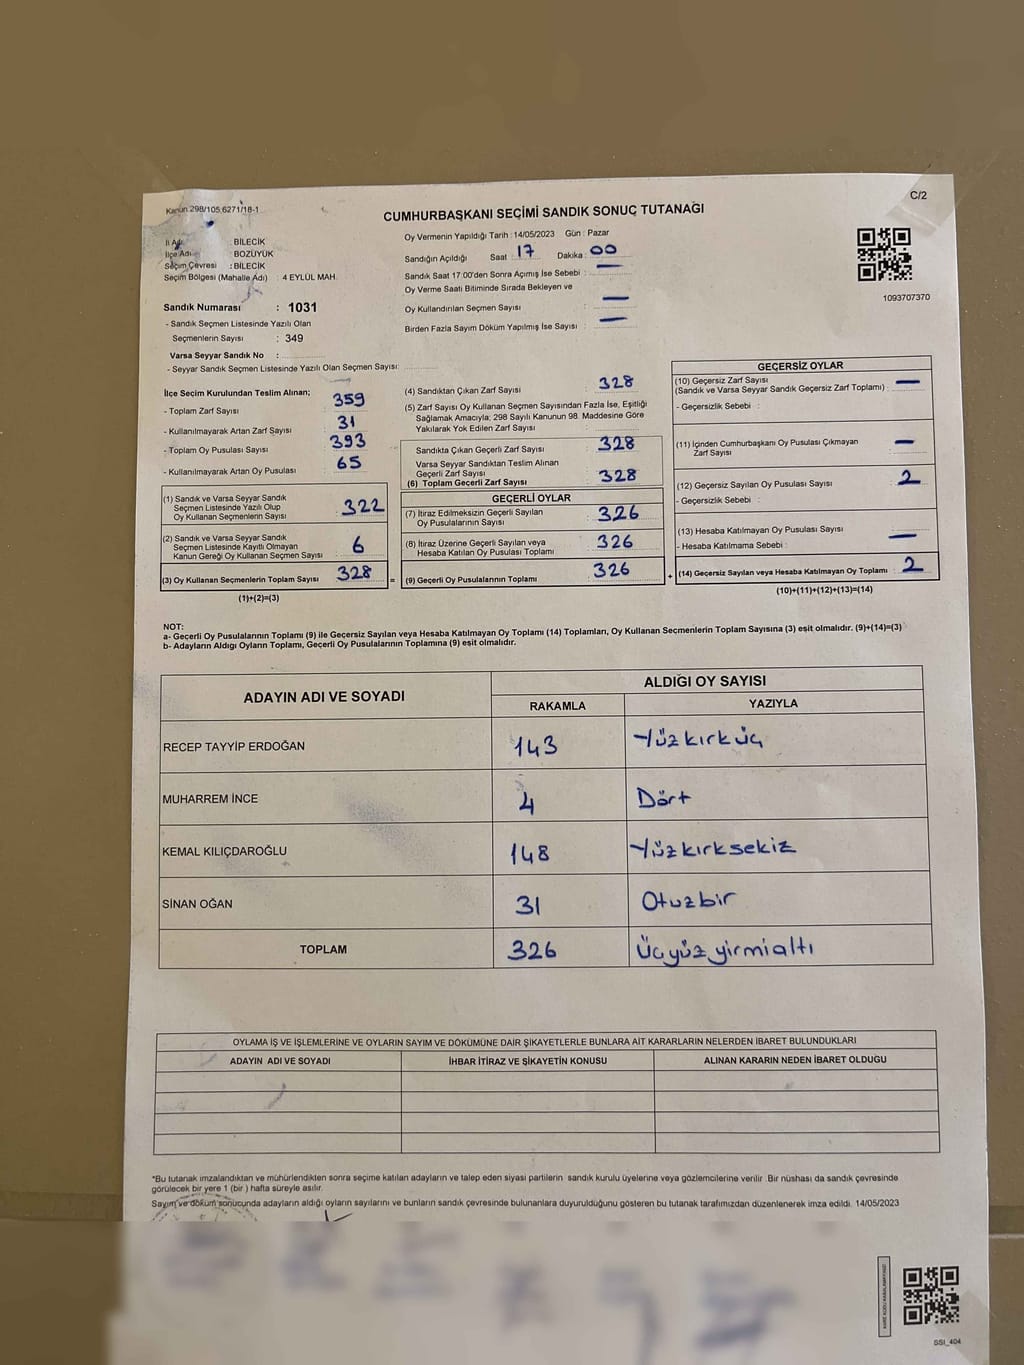 Kanun 298/105,6271/18-1
C/2
CUMHURBAŞKANI SEÇİMİ SANDIK SONUÇ TUTANAĞI
İl Adı : BİLECİK
İlçe Adı : BOZÜYÜK
Seçim Çevresi : BİLECİK
Seçim Bölgesi (Mahalle Adı) 4 EYLÜL MAH.
Sandık Numarası : 1031
- Sandık Seçmen Listesinde Yazılı Olan
Seçmenlerin Sayısı : 349
Varsa Seyyar Sandık No :
- Seyyar Sandık Seçmen Listesinde Yazılı Olan Seçmen Sayısı:
Oy Vermenin Yapıldığı Tarih : 14/05/2023 Gün : Pazar
Sandığın Açıldığı Saat : 17 Dakika : 00
Sandık Saat 17:00'den Sonra Açımış İse Sebebi : —
Oy Verme Saati Bitiminde Sırada Bekleyen ve
Oy Kullandırılan Seçmen Sayısı : —
Birden Fazla Sayım Döküm Yapılmış İse Sayısı : —
1093707370
İlçe Seçim Kurulundan Teslim Alınan;
- Toplam Zarf Sayısı : 359
- Kullanılmayarak Artan Zarf Sayısı : 31
- Toplam Oy Pusulası Sayısı : 393
- Kullanılmayarak Artan Oy Pusulası : 65
(1) Sandık ve Varsa Seyyar Sandık
Seçmen Listesinde Yazılı Olup
Oy Kullanan Seçmenlerin Sayısı : 322
(2) Sandık ve Varsa Seyyar Sandık
Seçmen Listesinde Kayıtlı Olmayan
Kanun Gereği Oy Kullanan Seçmen Sayısı : 6
(3) Oy Kullanan Seçmenlerin Toplam Sayısı : 328
(1)+(2)=(3)
(4) Sandıktan Çıkan Zarf Sayısı : 328
(5) Zarf Sayısı Oy Kullanan Seçmen Sayısından Fazla İse, Eşitliği
Sağlamak Amacıyla; 298 Sayılı Kanunun 98. Maddesine Göre
Yakılarak Yok Edilen Zarf Sayısı :
Sandıkta Çıkan Geçerli Zarf Sayısı : 328
Varsa Seyyar Sandıktan Teslim Alınan
Geçerli Zarf Sayısı
(6) Toplam Geçerli Zarf Sayısı : 328
GEÇERLİ OYLAR
(7) İtiraz Edilmeksizin Geçerli Sayılan
Oy Pusulalarının Sayısı : 326
(8) İtiraz Üzerine Geçerli Sayılan veya
Hesaba Katılan Oy Pusulası Toplamı : 326
= (9) Geçerli Oy Pusulalarının Toplamı : 326
GEÇERSİZ OYLAR
(10) Geçersiz Zarf Sayısı
(Sandık ve Varsa Seyyar Sandık Geçersiz Zarf Toplamı) : —
- Geçersizlik Sebebi :
(11) İçinden Cumhurbaşkanı Oy Pusulası Çıkmayan
Zarf Sayısı : —
(12) Geçersiz Sayılan Oy Pusulası Sayısı : 2
- Geçersizlik Sebebi :
(13) Hesaba Katılmayan Oy Pusulası Sayısı : —
- Hesaba Katılmama Sebebi :
+ (14) Geçersiz Sayılan veya Hesaba Katılmayan Oy Toplamı : 2
(10)+(11)+(12)+(13)=(14)
NOT:
a- Geçerli Oy Pusulalarının Toplamı (9) ile Geçersiz Sayılan veya Hesaba Katılmayan Oy Toplamı (14) Toplamları, Oy Kullanan Seçmenlerin Toplam Sayısına (3) eşit olmalıdır. (9)+(14)=(3)
b- Adayların Aldığı Oyların Toplamı, Geçerli Oy Pusulalarının Toplamına (9) eşit olmalıdır.
ADAYIN ADI VE SOYADI
ALDIĞI OY SAYISI
RAKAMLA YAZIYLA
RECEP TAYYİP ERDOĞAN 143 Yüzkırküç
MUHARREM İNCE 4 Dört
KEMAL KILIÇDAROĞLU 148 Yüzkırksekiz
SİNAN OĞAN 31 Otuzbir
TOPLAM 326 Üçyüzyirmialtı
OYLAMA İŞ VE İŞLEMLERİNE VE OYLARIN SAYIM VE DÖKÜMÜNE DAİR ŞİKAYETLERLE BUNLARA AİT KARARLARIN NELERDEN İBARET BULUNDUKLARI
ADAYIN ADI VE SOYADI İHBAR İTİRAZ VE ŞİKAYETİN KONUSU ALINAN KARARIN NEDEN İBARET OLDUĞU
*Bu tutanak imzalandıktan ve mühürlendikten sonra seçime katılan adayların ve talep eden siyasi partilerin sandık kurulu üyelerine veya gözlemcilerine verilir. Bir nüshası da sandık çevresinde
görülecek bir yere 1 (bir ) hafta süreyle asılır.
Sayım ve döküm sonucunda adayların aldığı oyların sayılarını ve bunların sandık çevresinde bulunanlara duyurulduğunu gösteren bu tutanak tarafımızdan düzenlenerek imza edildi. 14/05/2023
SSI_404